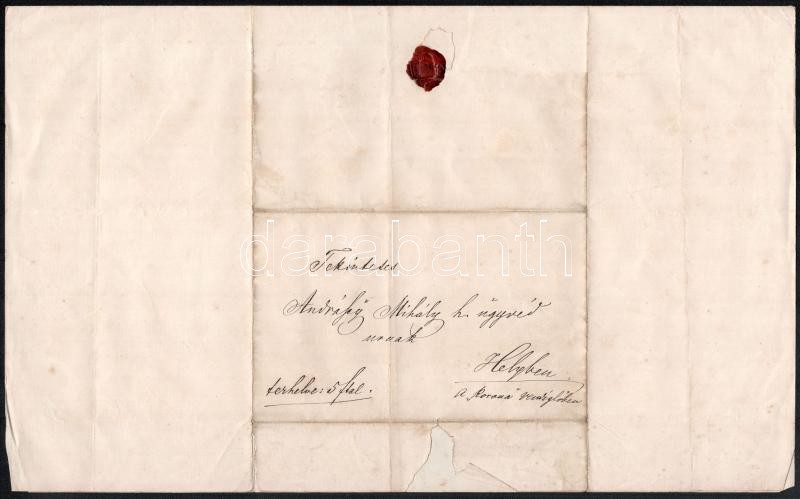 darabanth
Tekintetes
Andrásfy Mihály h. ügyvéd
urnak
Helyben.
terhelve: 5 fttal.
a "Korona" vendéglőben